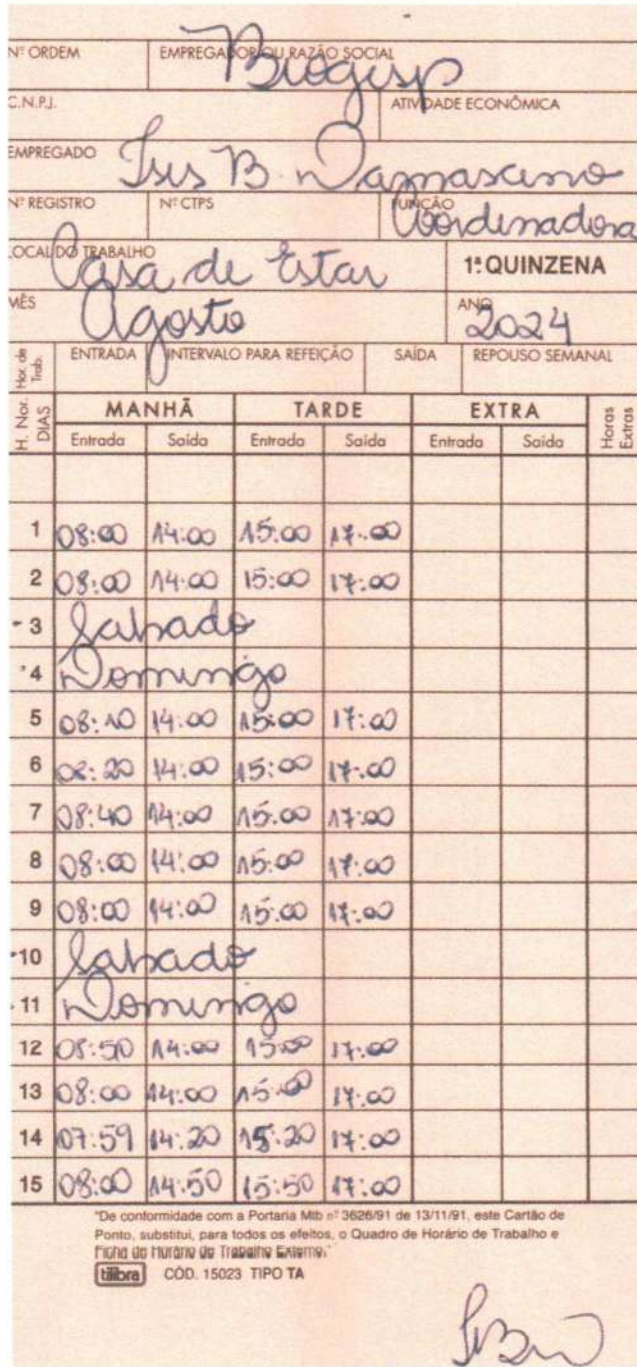 Nº ORDEM EMPREGADOR OU RAZÃO SOCIAL
Biogesp
C.N.P.J. ATIVIDADE ECONÔMICA
EMPREGADO Isis B. Damasceno
Nº REGISTRO Nº CTPS FUNÇÃO
Coordenadora
LOCAL DO TRABALHO
Casa de Estar 1ª QUINZENA
MÊS ANO
Agosto 2024
Hor. de Trab. ENTRADA INTERVALO PARA REFEIÇÃO SAÍDA REPOUSO SEMANAL
H. Nor. DIAS MANHÃ TARDE EXTRA Horas Extras
Entrada Saída Entrada Saída Entrada Saída
1 08:00 14:00 15:00 17:00
2 08:00 14:00 15:00 17:00
3 Sabado
4 Domingo
5 08:10 14:00 15:00 17:00
6 08:20 14:00 15:00 17:00
7 08:40 14:00 15:00 17:00
8 08:00 14:00 15:00 17:00
9 08:00 14:00 15:00 17:00
10 Sabado
11 Domingo
12 08:50 14:00 15:00 17:00
13 08:00 14:00 15:00 17:00
14 07:59 14:20 15:20 17:00
15 08:00 14:50 15:50 17:00
"De conformidade com a Portaria Mtb nº 3626/91 de 13/11/91, este Cartão de
Ponto, substitui, para todos os efeitos, o Quadro de Horário de Trabalho e
Ficha de Horário de Trabalho Externo."
tilibra CÓD. 15023 TIPO TA